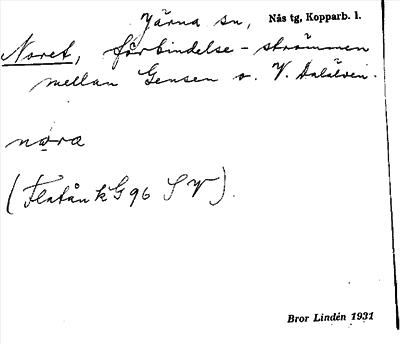 Järna sn, Nås tg, Kopparb. l.
Noret, förbindelse-strömmen
mellan Gensen o. V. Dalälven.
nora
(Flatån k G 96 S V).
Bror Lindén 1931